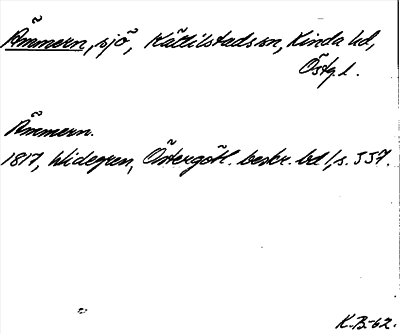 Ämmern, sjö, Kättilstads sn, Kinda hd,
Östg.l.
Ämmern.
1817, Widegren, Östergötl. beskr. bd 1, s. 557.
K.B-62.